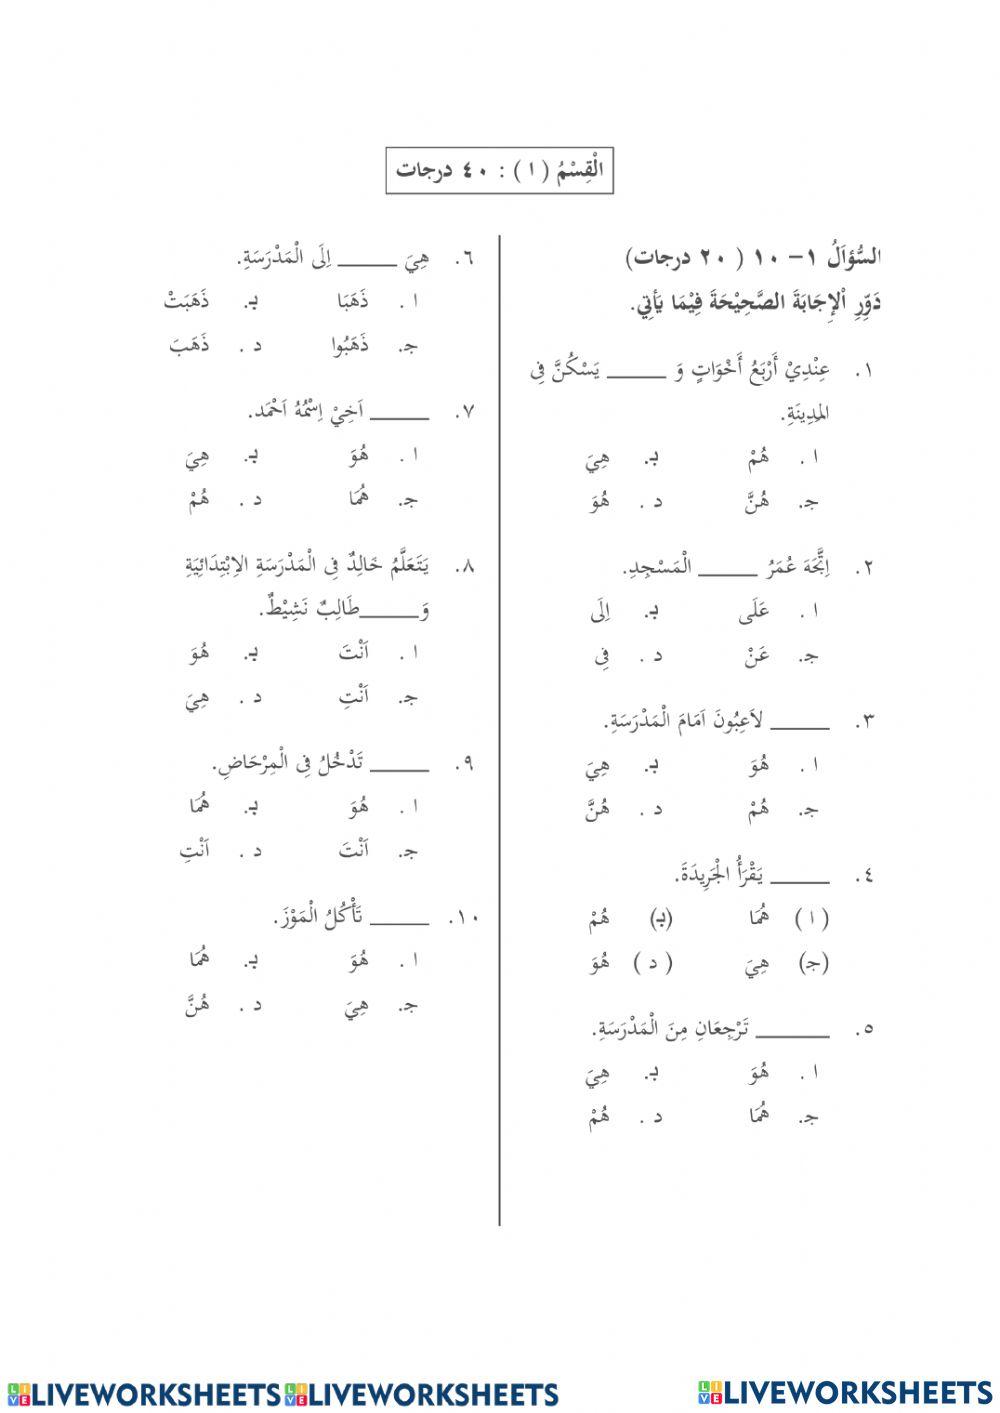 الْقِسْمُ ( ١ ) : ٤٠ درجات
السُّؤَالُ ١ – ١٠ ( ٢٠ درجات)
دَوِّرِ اْلإِجَابَةَ الصَّحِيْحَةَ فِيْمَا يَأْتِي.
١. عِنْدِيْ أَرْبَعُ أَخْوَاتٍ وَ ______ يَسْكُنَّ فِى
المِدِينَةِ.
ا . هُمْ بـ. هِيَ
جـ. هُنَّ د . هُوَ
٢. اِتَّجَهَ عُمَرُ ______ الْمَسْجِدِ.
ا . عَلَى بـ. اِلَى
جـ. عَنْ د . فِى
٣. ______ لاَعِبُونَ اَمَامَ الْمَدْرَسَةِ.
ا . هُوَ بـ. هِيَ
جـ. هُمْ د . هُنَّ
٤. ______ يَقْرَأُ الْجَرِيدَةَ.
( ا ) هُمَا (بـ) هُمْ
(جـ) هِيَ ( د ) هُوَ
٥. ________ تَرْجِعَانِ مِنَ الْمَدْرَسَةِ.
ا . هُوَ بـ. هِيَ
جـ. هُمَا د . هُمْ
٦. هِيَ ______ اِلَى الْمَدْرَسَةِ.
ا . ذَهَبَا بـ. ذَهَبَتْ
جـ. ذَهَبُوا د . ذَهَبَ
٧. ______ اَخِيْ اِسْمُهُ اَحْمَد.
ا . هُوَ بـ. هِيَ
جـ. هُمَا د . هُمْ
٨. يَتَعَلَّمُ خَالِدٌ فِى الْمَدْرَسَةِ الاِبْتِدَائِيَةِ
وَ______طَالِبٌ نَشِيْطٌ.
ا . اَنْتَ بـ. هُوَ
جـ. اَنْتِ د . هِيَ
٩. ______ تَدْخُلُ فِى الْمِرْحَاضِ.
ا . هُوَ بـ. هُمَا
جـ. اَنْتَ د . اَنْتِ
١٠. ______ تَأْكُلُ الْمَوْزَ.
ا . هُوَ بـ. هُمَا
جـ. هِيَ د . هُنَّ
LIVE LIVEWORKSHEETS LIVE LIVEWORKSHEETS LIVE LIVEWORKSHEETS